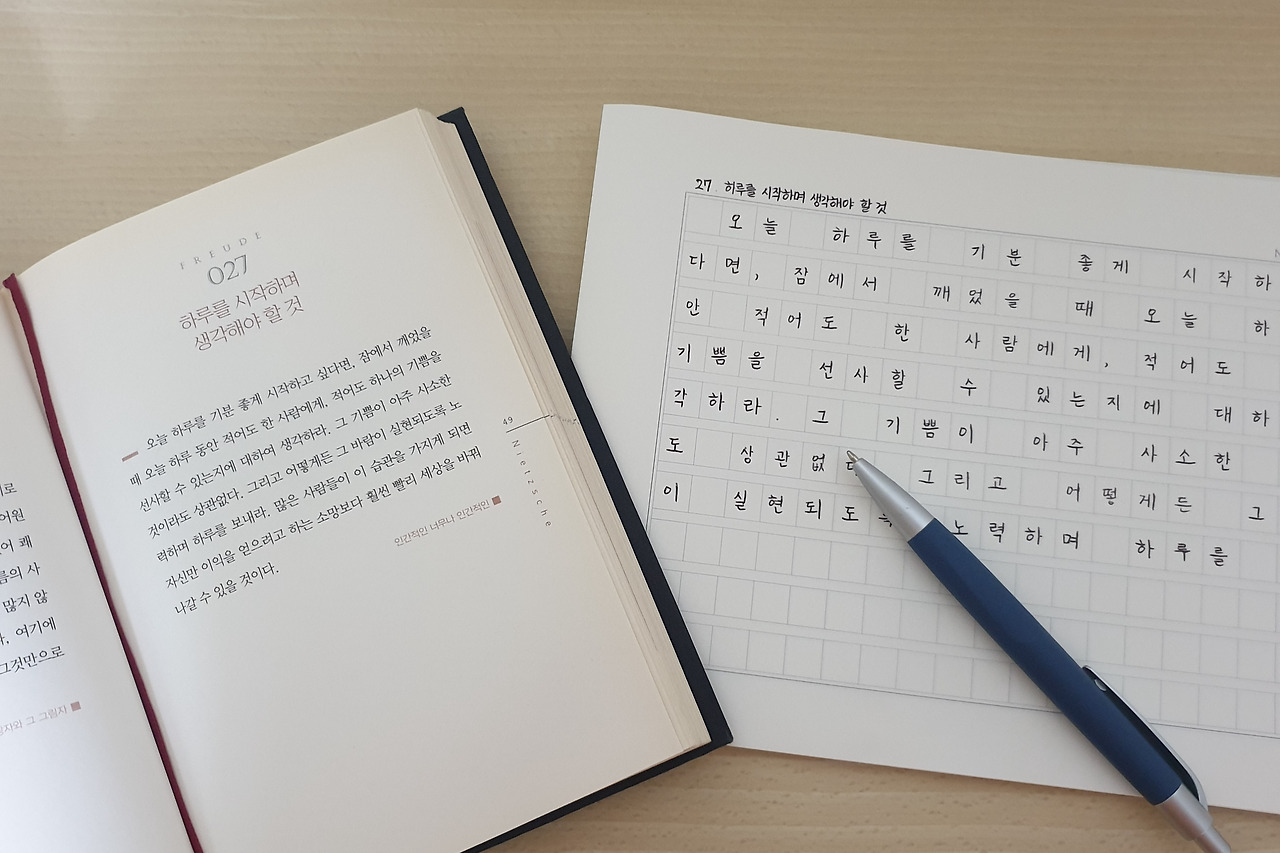 FREUDE
027
하루를 시작하며
생각해야 할 것
오늘 하루를 기분 좋게 시작하고 싶다면, 잠에서 깨었을
때 오늘 하루 동안 적어도 한 사람에게, 적어도 하나의 기쁨을
선사할 수 있는지에 대하여 생각하라. 그 기쁨이 아주 사소한
것이라도 상관없다. 그리고 어떻게든 그 바람이 실현되도록 노
력하며 하루를 보내라. 많은 사람들이 이 습관을 가지게 되면
자신만 이익을 얻으려고 하는 소망보다 훨씬 빨리 세상을 바꿔
나갈 수 있을 것이다.
인간적인 너무나 인간적인
49
Nietzsche
어원
름의 사
많지 않
여기에
그것만으로
그 그림자
27. 하루를 시작하며 생각해야 할 것
오늘 하루를 기분 좋게 시작하
다면, 잠에서 깨었을 때 오늘 하
안 적어도 한 사람에게, 적어도
기쁨을 선사할 수 있는지에 대하
각하라. 그 기쁨이 아주 사소한
도 상관없 그리고 어떻게든 그
이 실현되도 노력하며 하루를